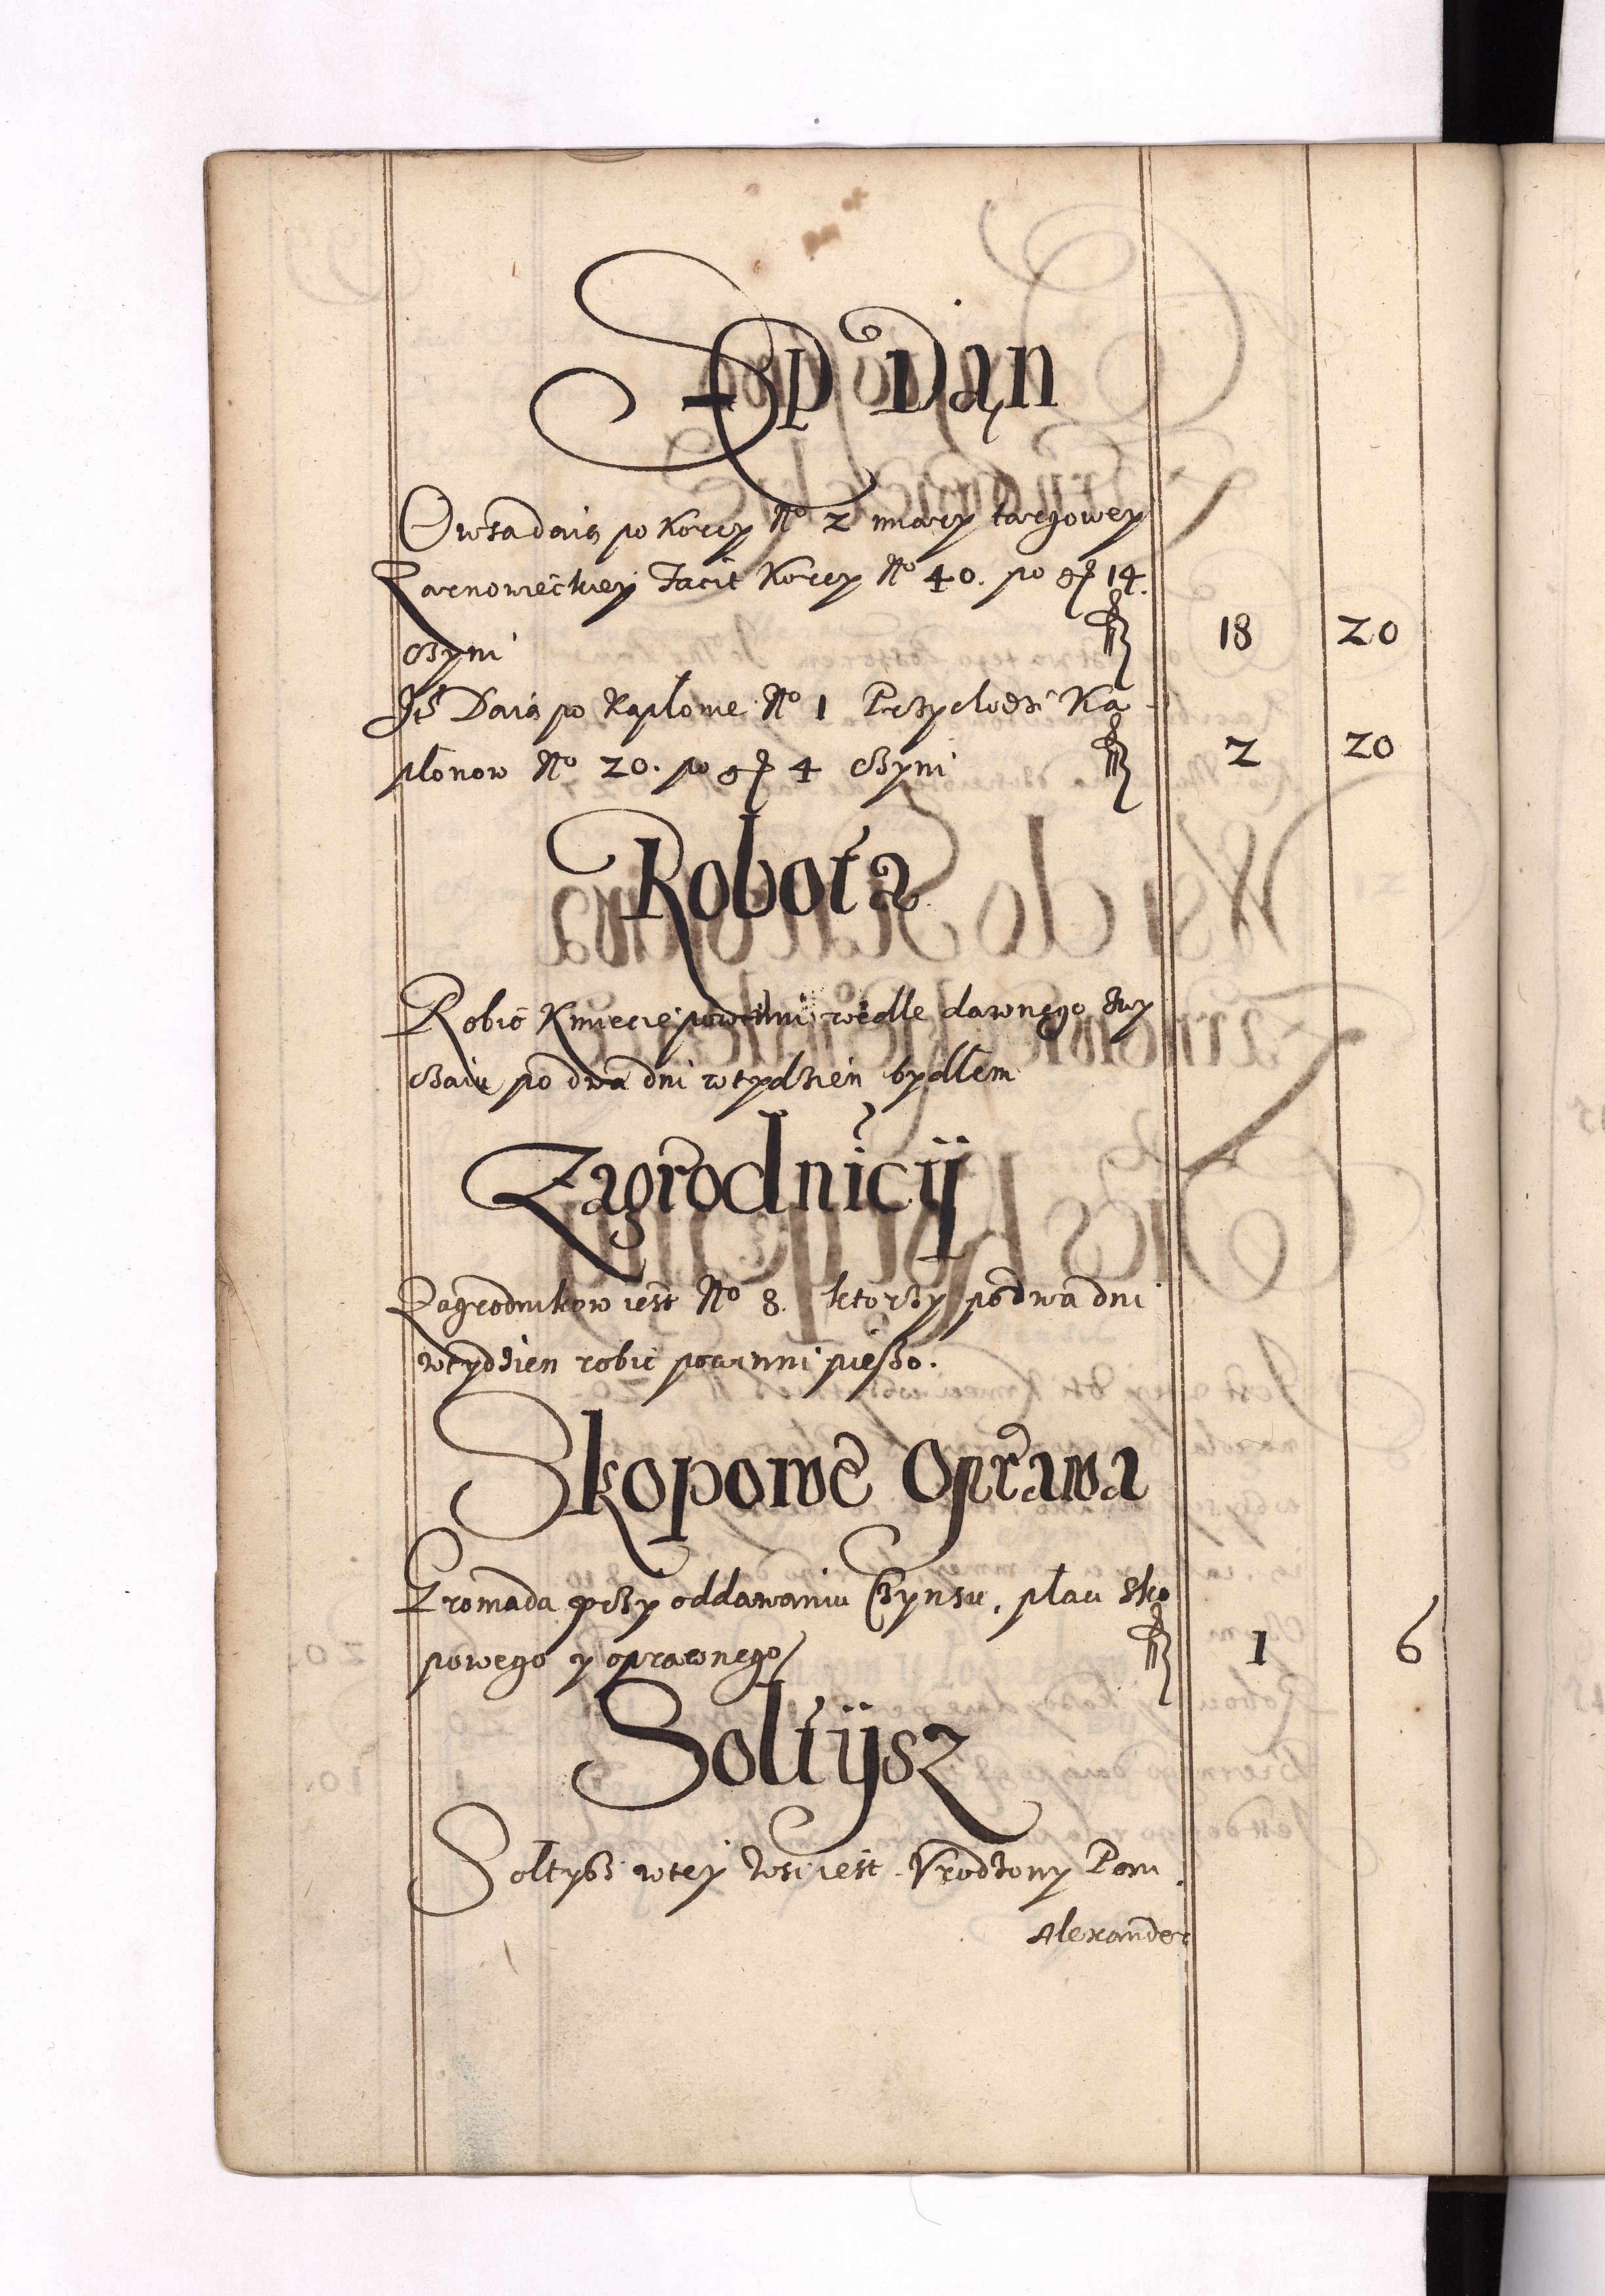 Sp Dan
Owsa daią po Korcy No 2 miary targowey
Zarnowieckiey Facit Korcy No 40. po gr 14.
czyni fl 18 20
Daią po Kapłonie No 1 Przychodzi Ka-
płonow No 20. po gr 4 czyni fl 2 20
Robota
Robić Kmiecie powinni wedle dawnego zwy
czaiu po dwa dni w tydzień bydłem
Zagrodnicy
Zagrodnikow iest No 8. ktorzy po dwa dni
w tydzien robić powinni pieszo.
Skopowe Oprawa
Gromada przy oddawaniu Czynszu, płaci Sko
powego y oprawnego fl 1 6
Soltysz
Soltysz w tey Wsi iest Vrodzony Pan
Alexander